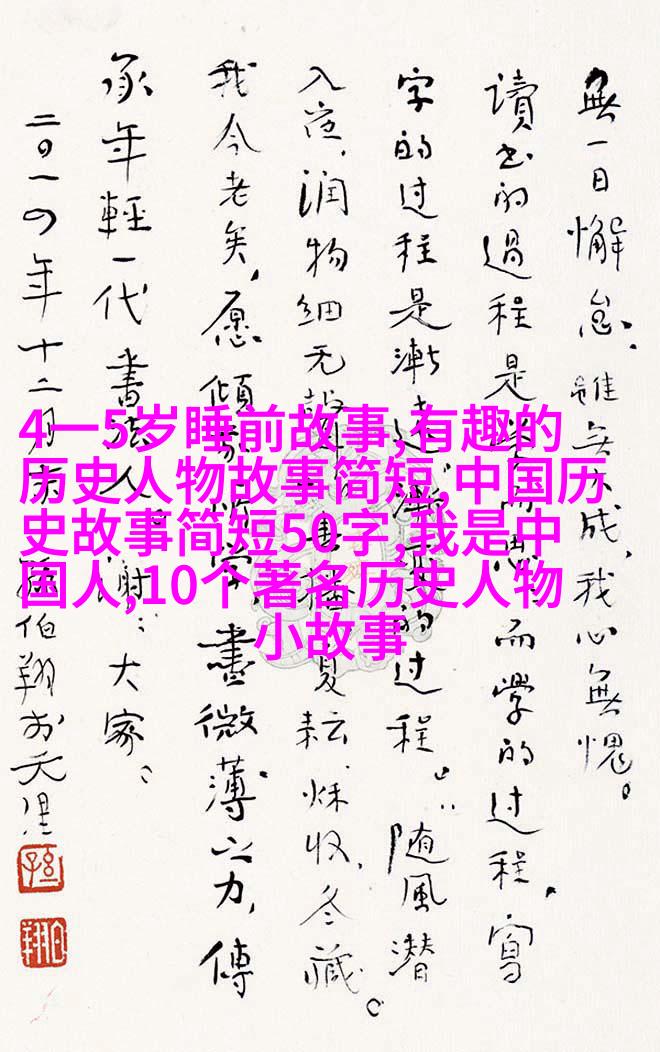 無一日懈怠，雖無大成，我心無愧。
讀书的過程是而學的过程，寫
字的过程是漸的过程。随風潜
入夜，润物细无声夏耘、秋收、冬藏。
我今老矣，愿傾学，盡微薄之力，傳
承年輕一代書法人。谢大家
二〇一四年十二月孫伯翔於天津
4一5岁睡前故事,有趣的
历史人物故事简短,中国历
史故事简短50字,我是中
国人,10个著名历史人物
小故事